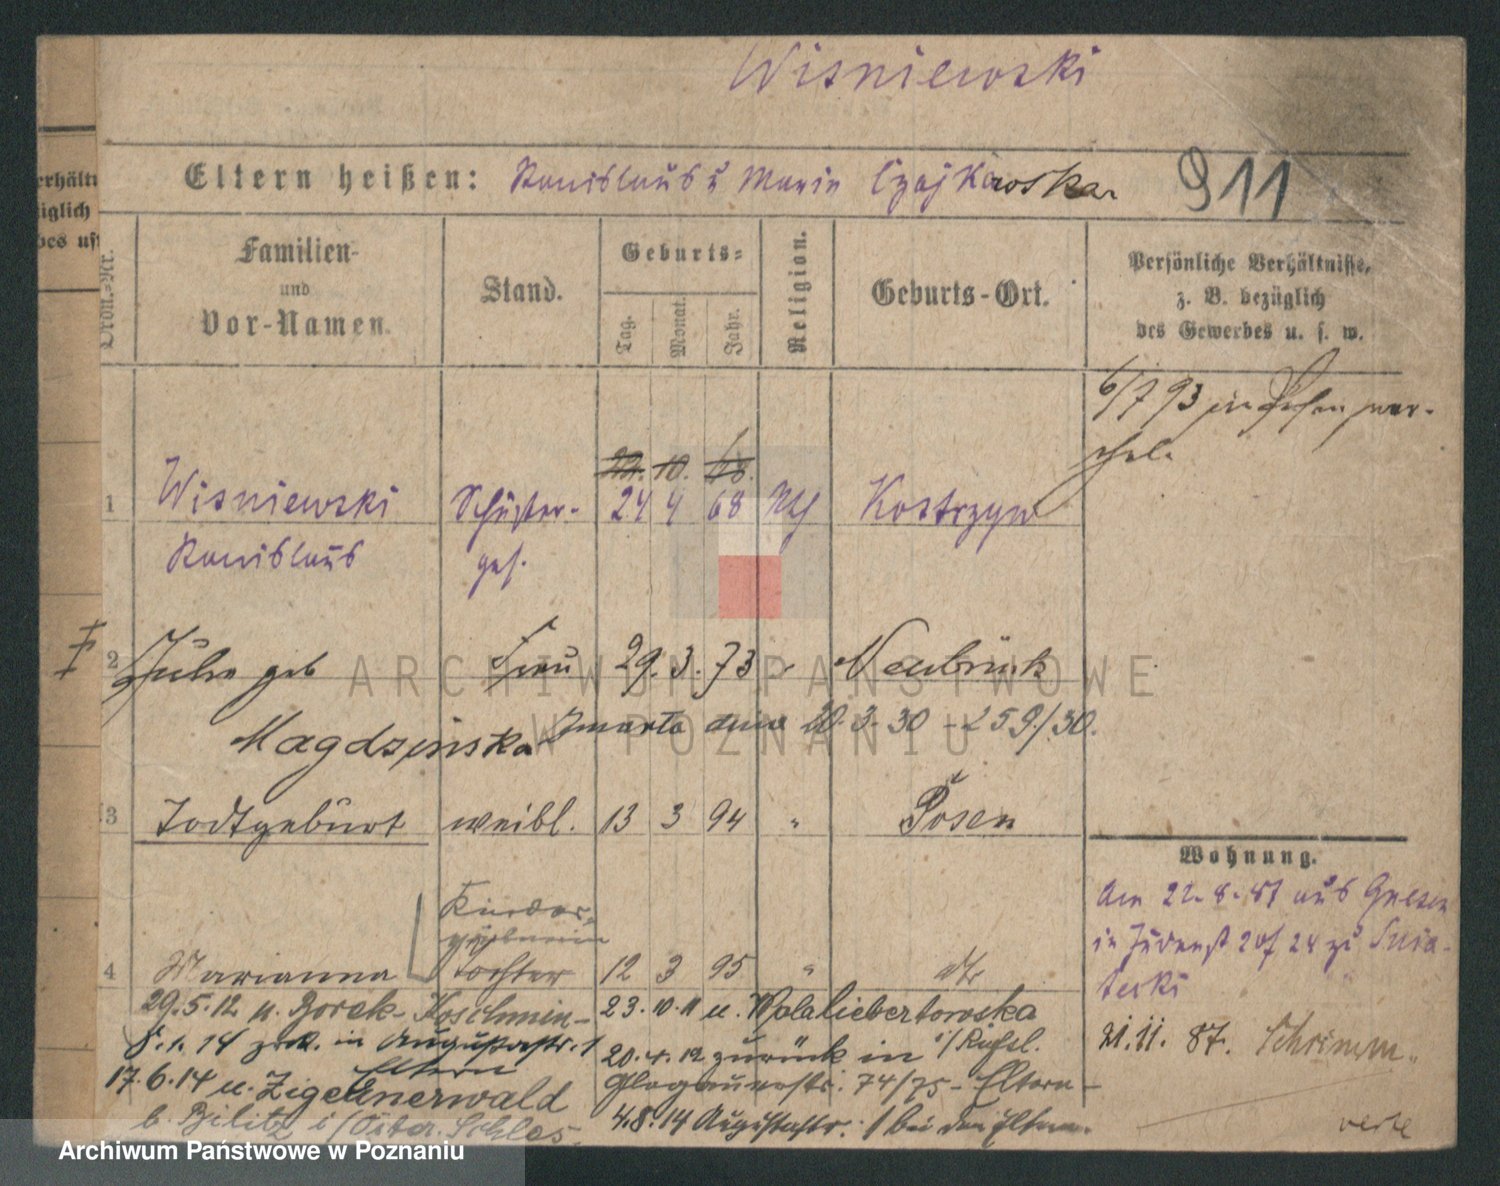 Wisniewski
Eltern heißen: Stanislaus u Maria Czajkowska
911
Ordn.-Nr.
Familien-
und
Vor-Namen.
Stand.
Geburts-
Tag.
Monat.
Jahr.
Religion.
Geburts-Ort.
Persönliche Verhältnisse,
z. B. bezüglich
des Gewerbes u. s. w.
6/7 93 in Posen
22. 10. 68.
1 Wisniewski Schuster- 24 4 68 kth Kostrzyn
Stanislaus ges.
2 Julie geb Frau 29. 3. 73 " Neubrück
Magdzinska Zmarła dnia 20. 3. 30 - 259/30.
3 Todtgeburt weibl. 13 3 94 " Posen
Kinder-
4 Marianna Tochter 12 3 95 " dto
29.5.12 n. Borek-Koschmin- 23.10.11 u. Wola
8.1.14 zrk. in Augustastr. 1
Eltern
20. 12 zurück in
Glogauerstr. 74/75 - Eltern -
17.6.14 n. Zigeunerwald
b. Bilitz i/Öster. Schles.
4.8.14 Augustastr. 1 bei den Eltern.
Wohnung.
Am 22.8.87 aus Gnesen
in
21.11. 87. Schrimm.
verte
ARCHIWUM PAŃSTWOWE
W POZNANIU
Archiwum Państwowe w Poznaniu